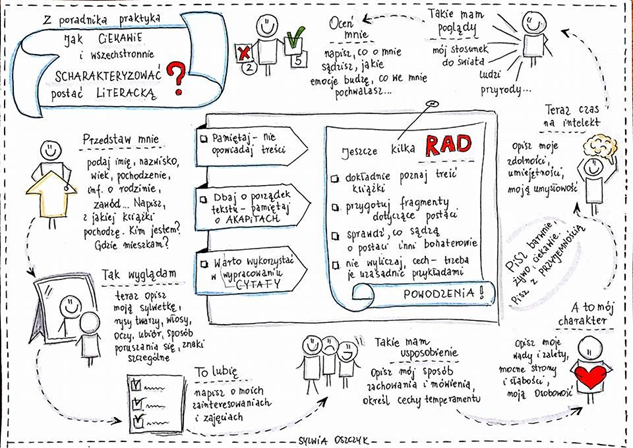 Z poradnika praktyka
Jak CIEKAWIE
i wszechstronnie
SCHARAKTERYZOWAĆ
postać LITERACKĄ
?
Przedstaw mnie
podaj imię, nazwisko,
wiek, pochodzenie,
inf. o rodzinie,
zawód... Napisz,
z jakiej książki
pochodzę. Kim jestem?
Gdzie mieszkam?
Tak wyglądam
teraz opisz
moją sylwetkę,
rysy twarzy, włosy,
oczy, ubiór, sposób
poruszania się, znaki
szczególne
To lubię
napisz o moich
zainteresowaniach
i zajęciach
Takie mam
usposobienie
Opisz mój sposób
zachowania i mówienia,
określ cechy temperamentu
A to mój
charakter
Opisz moje
wady i zalety,
mocne strony
i słabości,
moją osobowość
Pisz barwnie
żywo ciekawie.
Pisz z przyjemnością
Teraz czas
na intelekt
opisz moje
zdolności,
umiejętności,
moją umysłowość
Takie mam
poglądy
mój stosunek
do świata
ludzi
przyrody...
Oceń
mnie
napisz, co o mnie
sądzisz, jakie
emocje budzę, co we mnie
pochwalasz...
2
5
Pamiętaj - nie
opowiadaj treści
Dbaj o porządek
tekstu - pamiętaj
o AKAPITACH
Warto wykorzystać
w wypracowaniu
CYTATY
Jeszcze kilka RAD
dokładnie poznaj treść
książki
przygotuj fragmenty
dotyczące postaci
sprawdź, co sądzą
o postaci inni bohaterowie
nie wyliczaj, cech - trzeba
je uzasadnić przykładami
POWODZENIA!
SYLWIA OSZCZYK